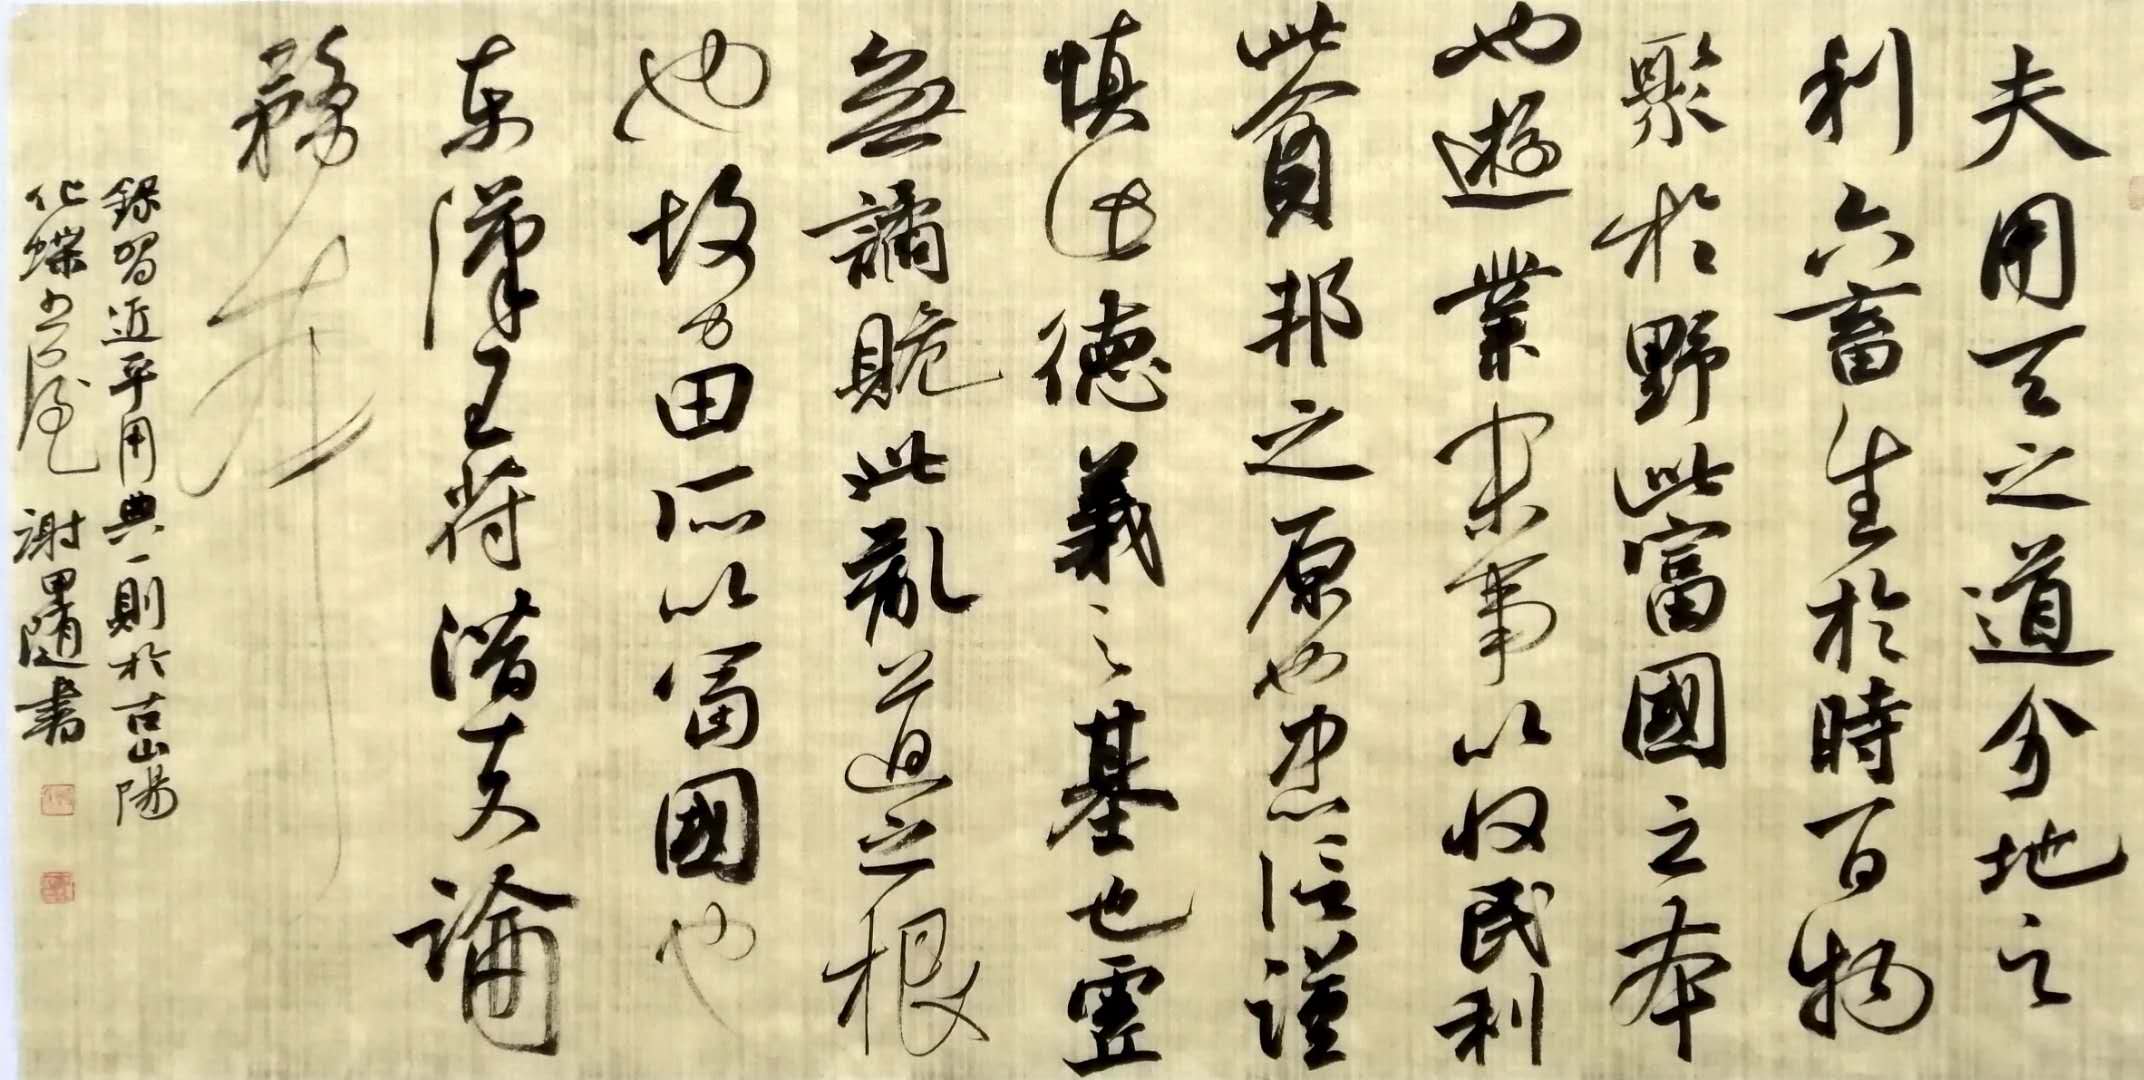 夫用天之道分地之
利六畜生於時百物
聚於野此富國之本
也遊業末事以收民利
此貧邦之原也忠信謹
慎此德義之基也虛
無譎詭此亂道之根
也故力田所以富國也
東漢王符潛夫論
務本
錄習近平用典一則於古山陽
化蝶書屋 謝隨書